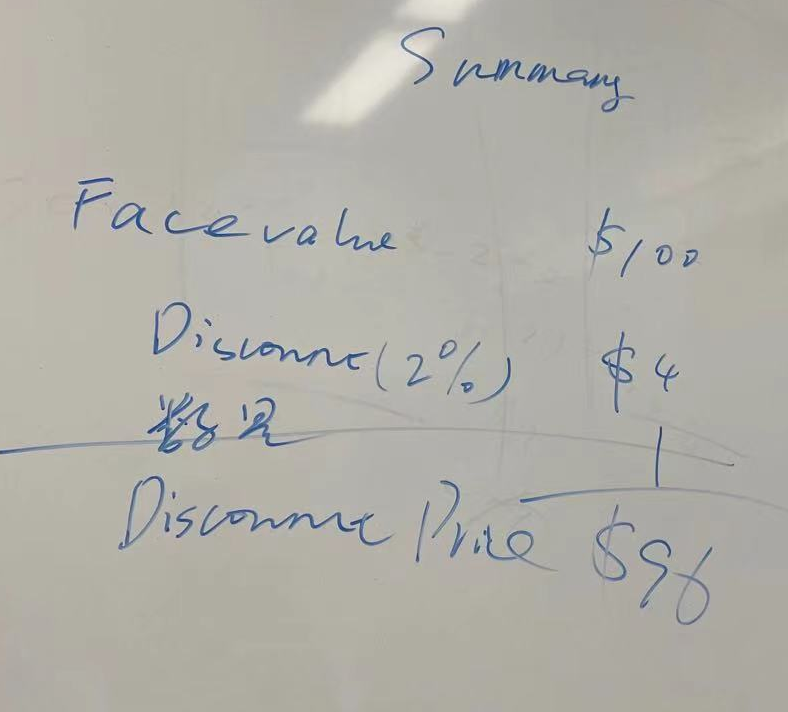 Summary
Face value $100
Discount (2%) $4
数量 1
Discount Price $96